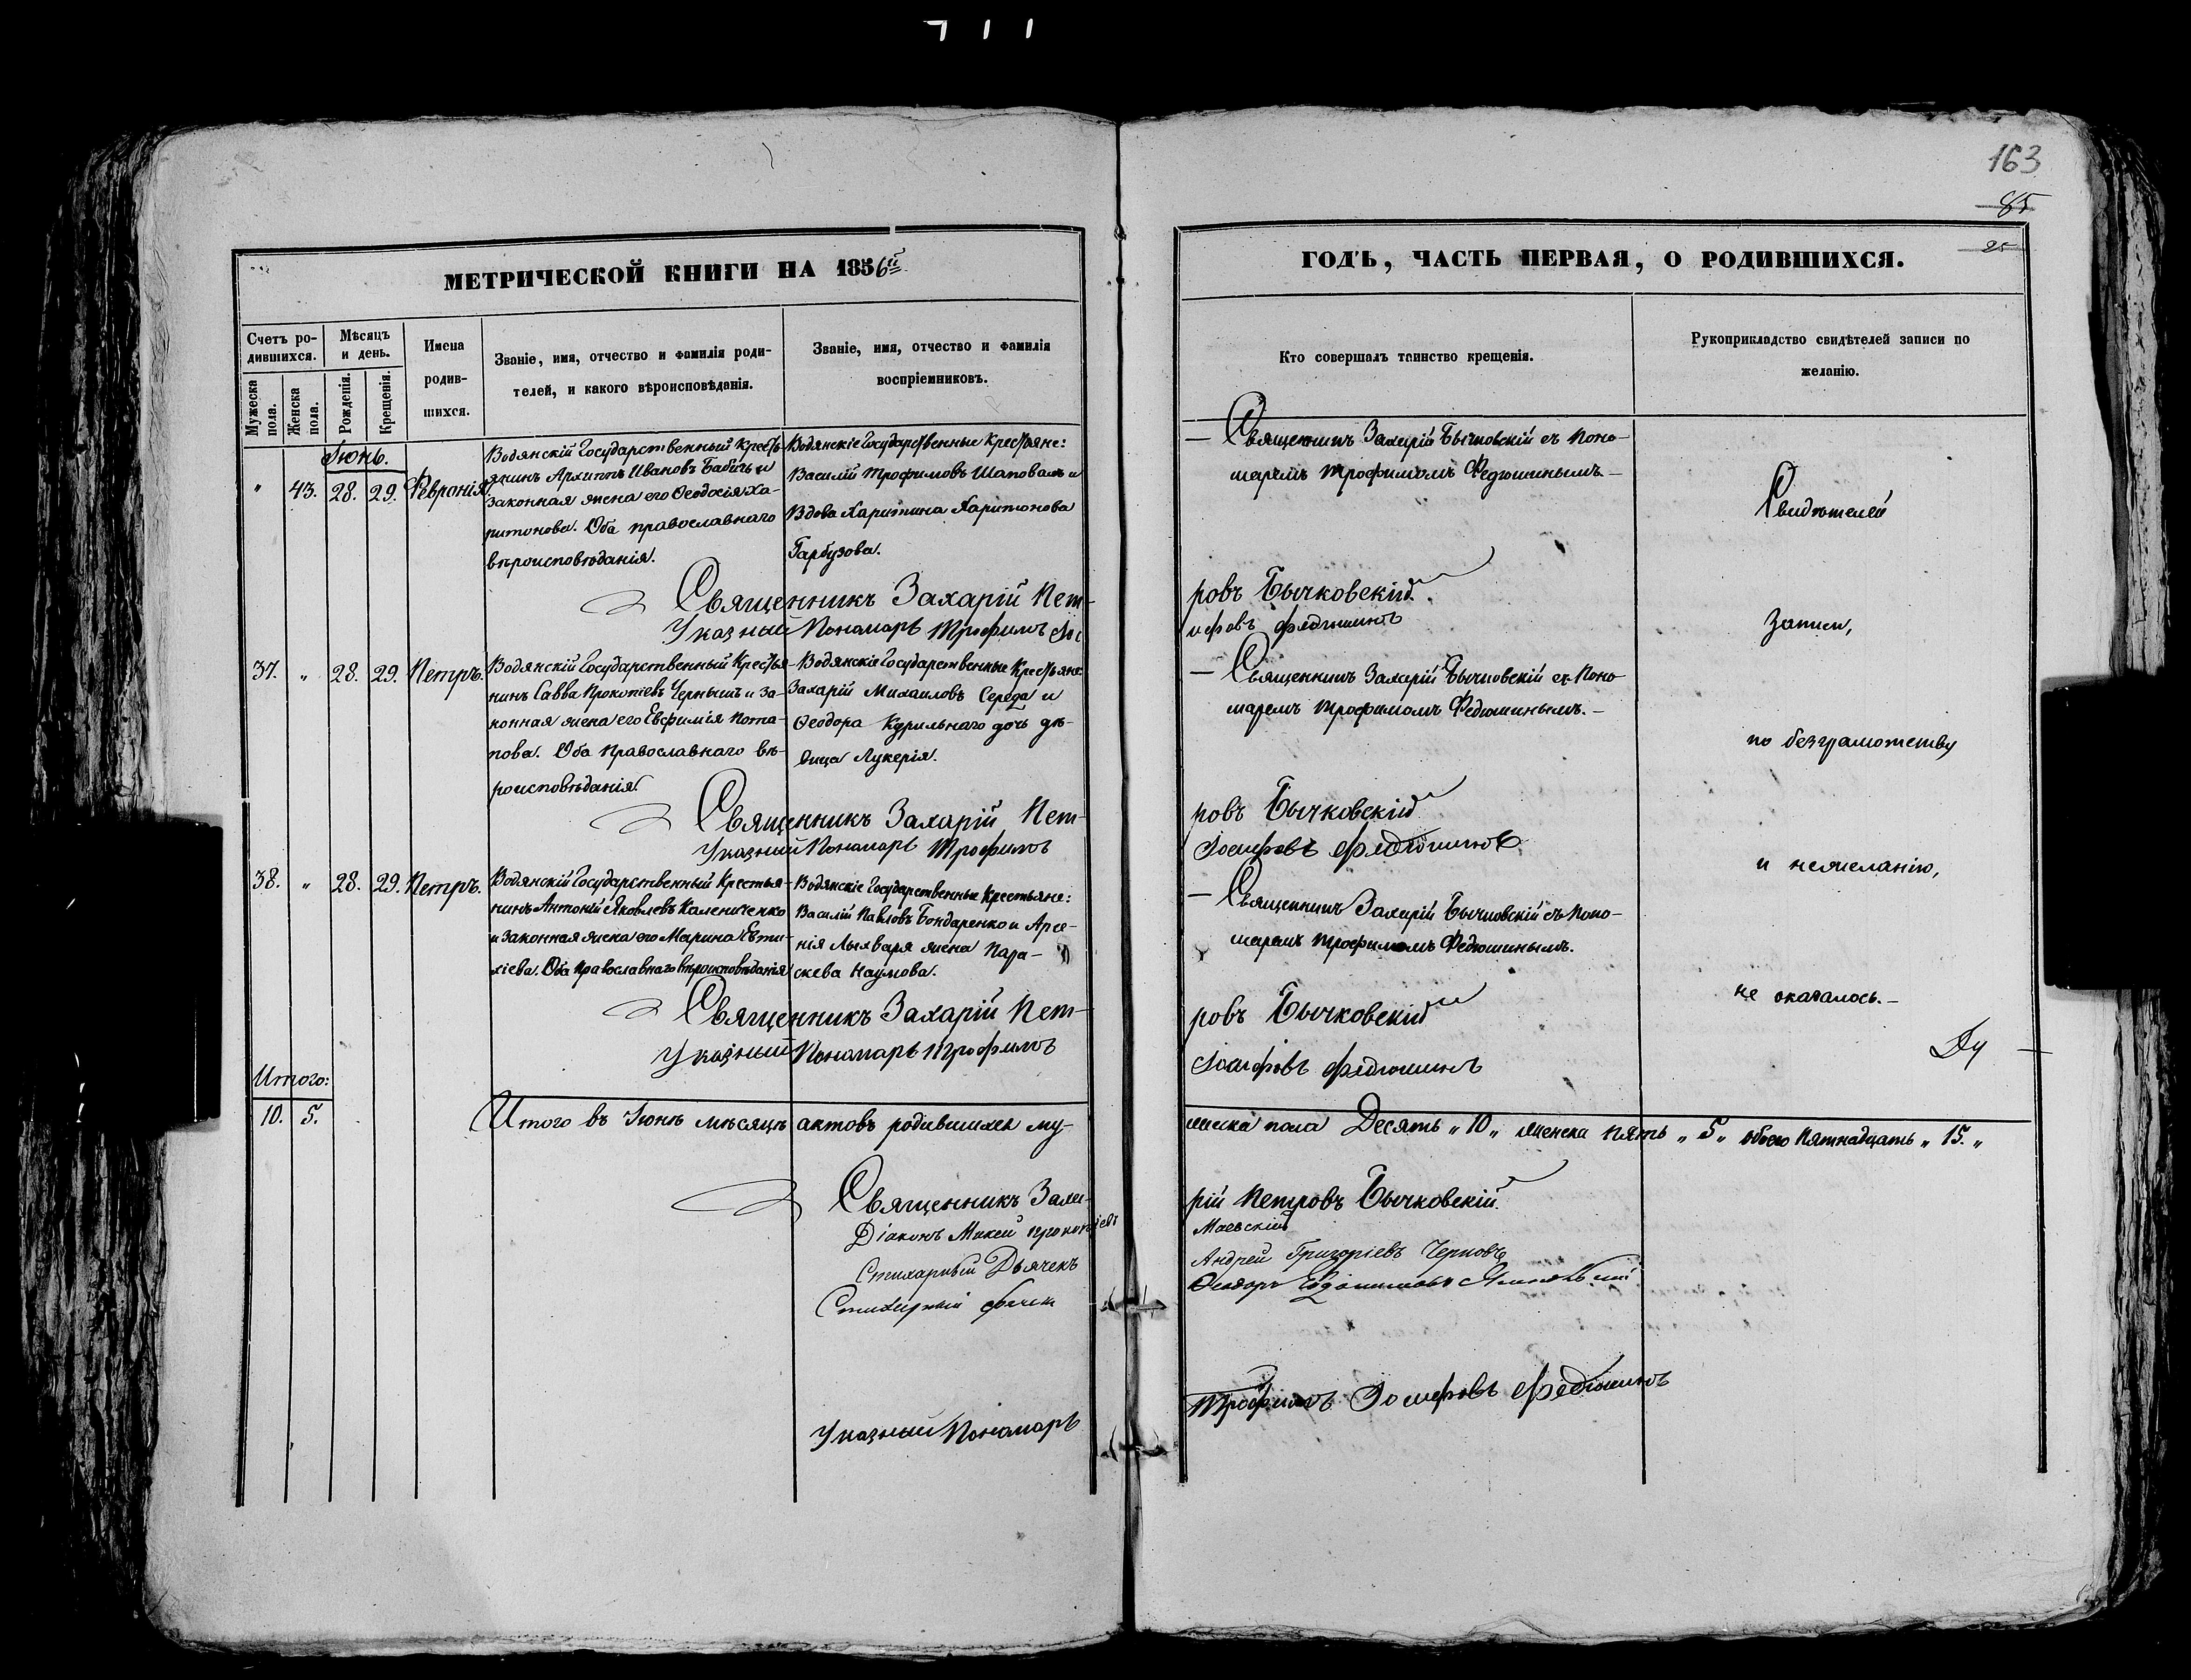 163
85
25
МЕТРИЧЕСКОЙ КНИГИ НА 1856й
ГОДЪ, ЧАСТЬ ПЕРВАЯ, О РОДИВШИХСЯ.
Счетъ ро-
дившихся.
Мужеска
пола.
Женска
пола.
Мѣсяцъ
и день.
Рожденія.
Крещенія.
Имена
родив-
шихся.
Званіе, имя, отчество и фамилія роди-
телей, и какого вѣроисповѣданія.
Званіе, имя, отчество и фамилія
воспріемниковъ.
Кто совершалъ таинство крещенія.
Рукоприкладство свидѣтелей записи по
желанію.
Іюнь.
" 43. 28. 29. Февронія.
Водянскій Государственный Кресть-
янинъ Архиппъ Ивановъ Бабичь и
законная жена его Ѳеодосія Ха-
ритонова. Оба православнаго
вѣроисповѣданія.
Водянскіе Государственные Крестьяне:
Василій Трофимовъ Шаповалъ и
Вдова Харитина Харитонова
Гарбузова.
— Священникъ Захарій Бычковскій съ Поно-
маремъ Трофимомъ Федюшинымъ.—
Священникъ Захарій Пет-
ровъ Бычковскій.
Указный Пономарь Трофимъ Іос
ифовъ Федюшинъ
37. " 28. 29. Петръ.
Водянскій Государственный Крестья-
нинъ Савва Прокопіевъ Чернышъ и за-
конная жена его Евфимія Пота-
пова. Оба Православнаго вѣ-
роисповѣданія.
Водянскіе Государственные Крестьяне:
Захарій Михаиловъ Середа и
Ѳеодора Курильнаго дочь дѣ-
вица Лукерія.
— Священникъ Захарій Бычковскій съ Поно-
маремъ Трофимомъ Федюшинымъ.—
Священникъ Захарій Пет-
ровъ Бычковскій
Указный Пономарь Трофимъ
Іосифовъ Федюшинъ
38. " 28. 29. Петръ.
Водянскій Государственный Крестья-
нинъ Антоній Яковлевъ Калениченко
и законная жена его Марина Евти-
хіева. Оба Православнаго вѣроисповѣданія
Водянскіе Государственные Крестьяне:
Василій Павловъ Бондаренко и Арсе-
нія Лыхваря жена Пара-
скева Наумова.
— Священникъ Захарій Бычковскій съ Поно-
маремъ Трофимомъ Федюшинымъ.
Священникъ Захарій Пет-
ровъ Бычковскій
Указный Пономарь Трофимъ
Іосифовъ Федюшинъ
Свидѣтелей
Записи,
по безграмотству
и нежеланію,
не оказалось.—
Ду —
Итого:
10. 5.
Итого въ Іюнѣ мѣсяцѣ актовъ родившихся му-
жеска пола Десять „10„ женска пять „5„ обоего Пятнадцать „15.„
Священникъ Заха-
рій Петровъ Бычковскій.
Діаконъ Мокей Прокопіевъ
Маевскій
Стихарный Дьячекъ
Андрей Григоріевъ Черновъ
Стихарный дьячек
Ѳеодоръ
Указный Пономарь
Трофимъ Іосифовъ Федюшинъ